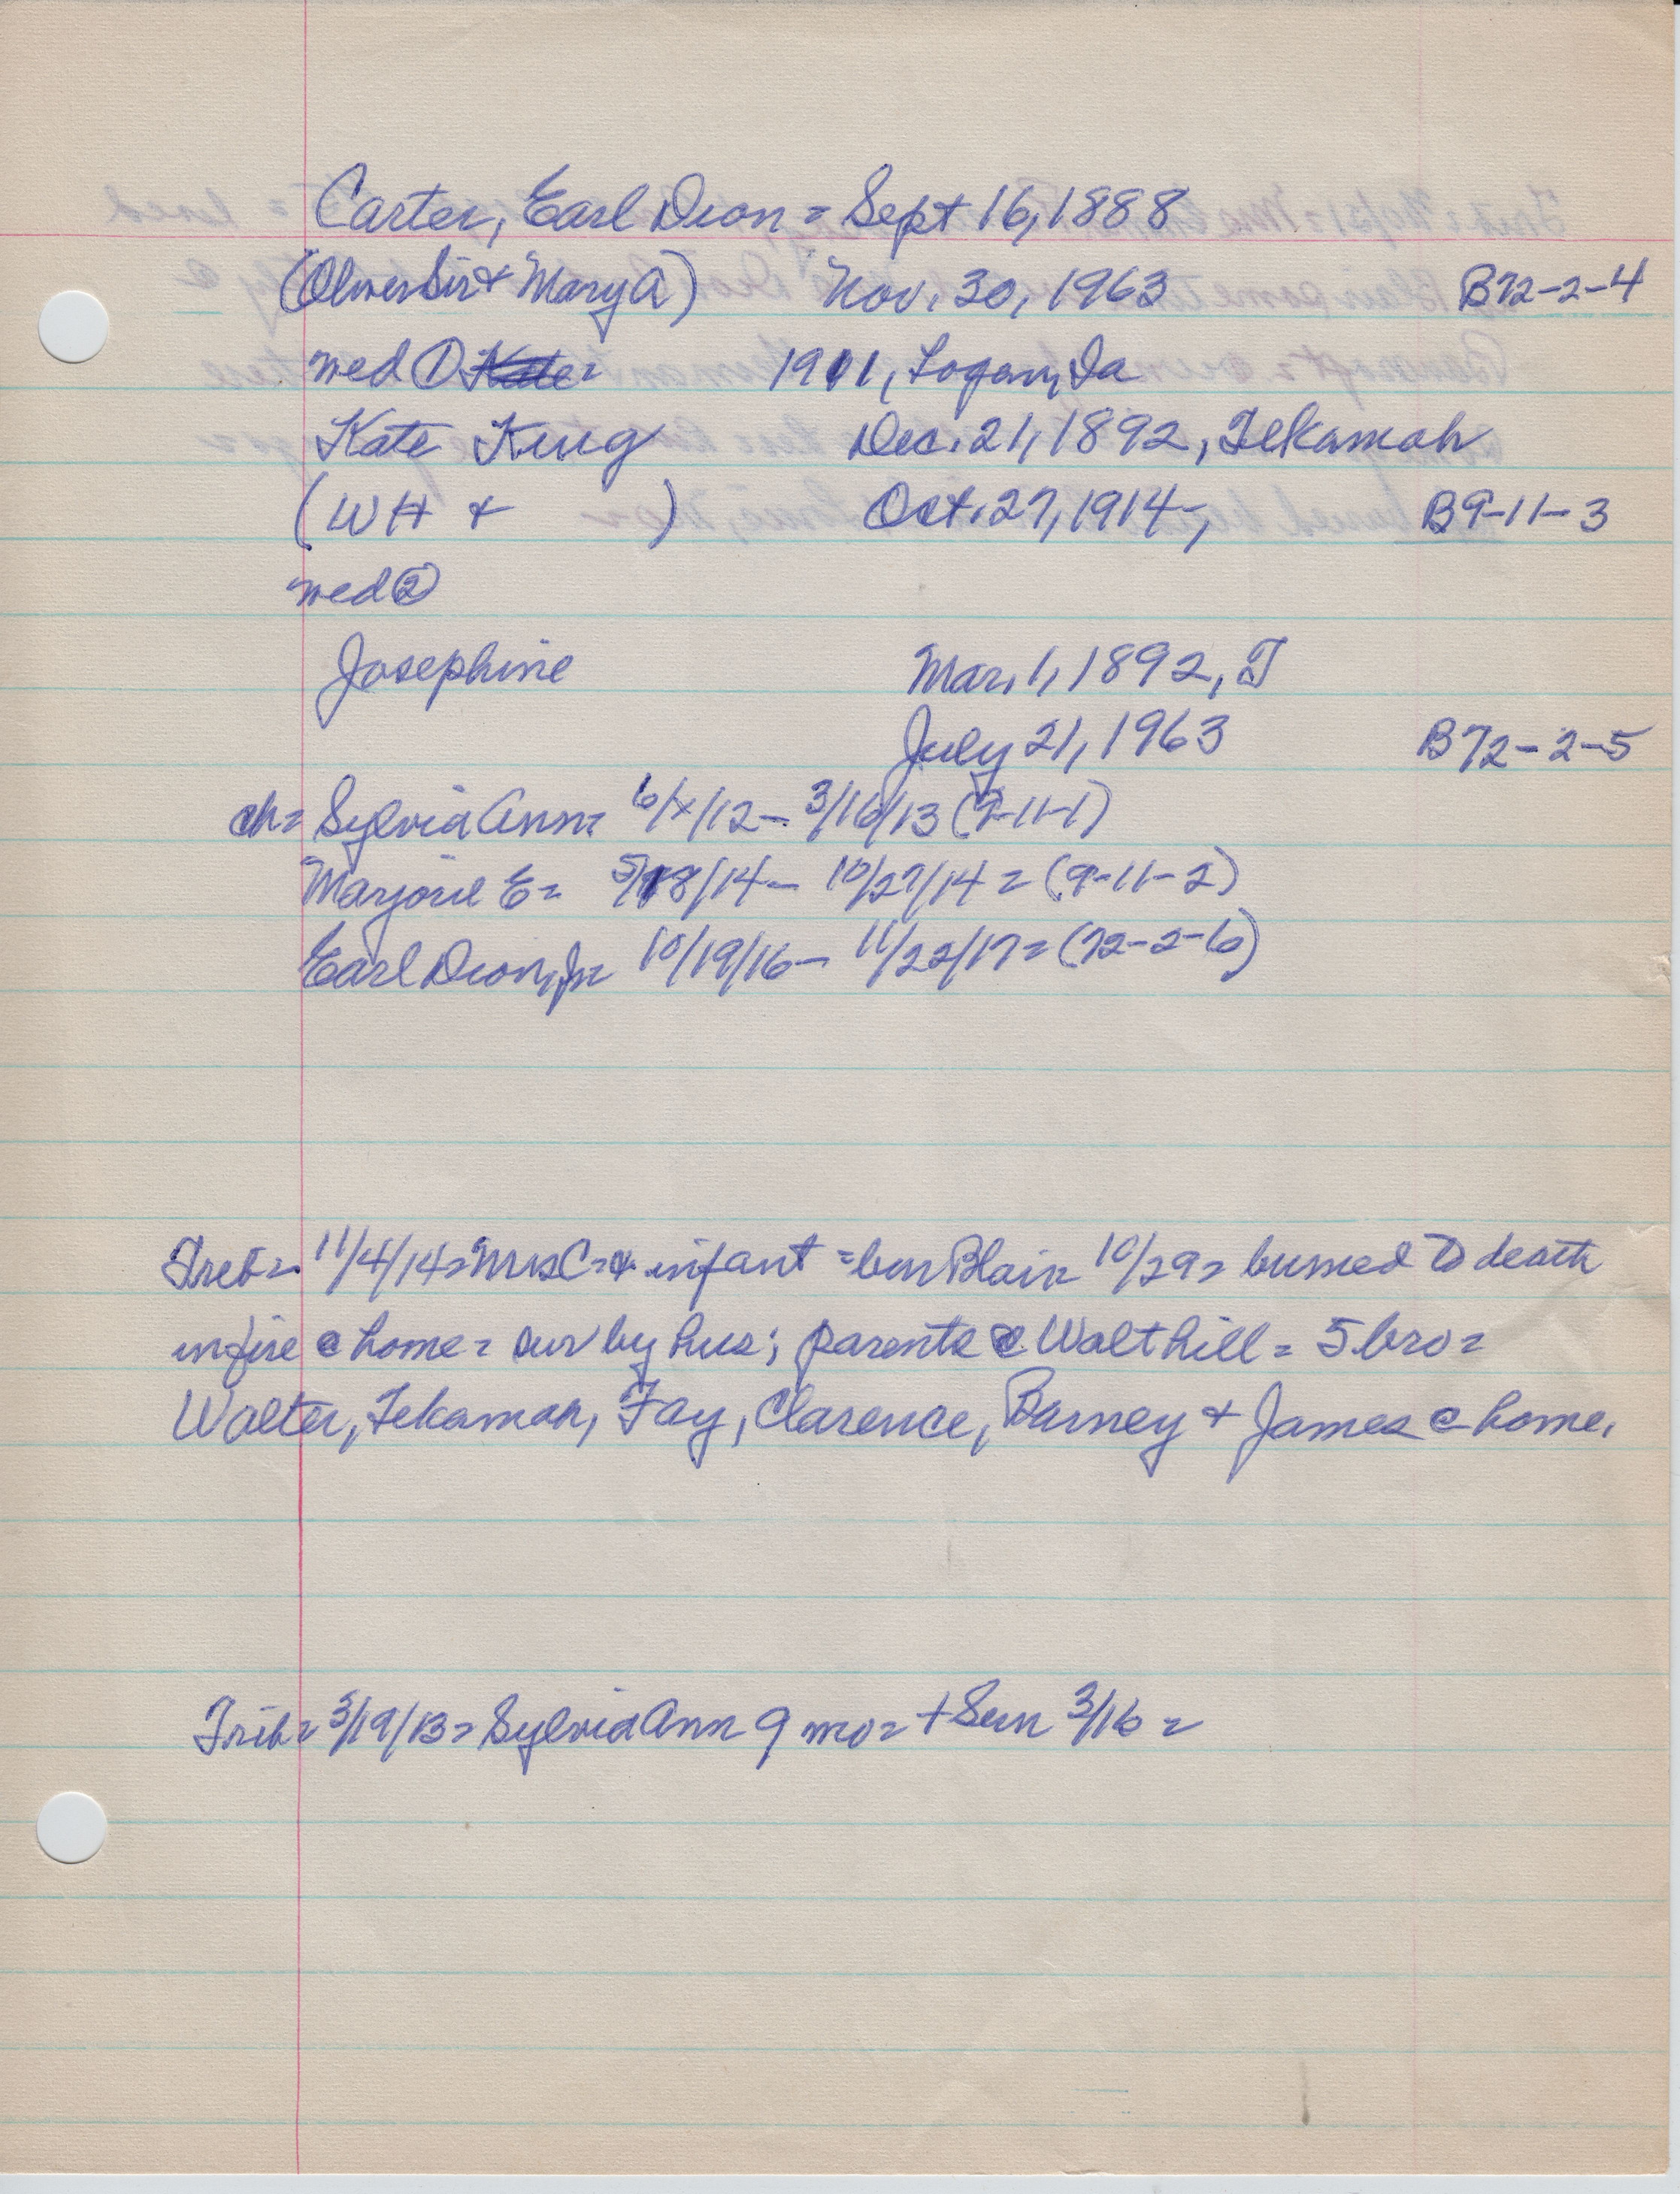 Carter, Earl Dion = Sept 16, 1888
(Oliver Sir & Mary A) Nov. 30, 1963 B72-2-4
med ① Kate = 1911, Logan, Ia
Kate King Dec. 21, 1892, Tekamah
(WH & ) Oct. 27, 1914, B9-11-3
med ②
Josephine Mar. 1, 1892, T
July 21, 1963 B72-2-5
ch = Sylvia Ann = 6/x/12 - 3/16/13 (9-11-1)
Marjorie E = 5/18/14 - 10/27/14 = (9-11-2)
Earl Dion, Jr = 10/19/16 - 11/22/17 = (72-2-6)
Trib = 11/4/14 = Mrs C = & infant = bur Blair 10/29 = burned to death
in fire @ home = sur by hus; parents @ Walthill = 5 bro =
Walter, Tekamah, Fay, Clarence, Barney & James @ home.
Trib = 3/19/13 = Sylvia Ann 9 mo = + Sun 3/16 =